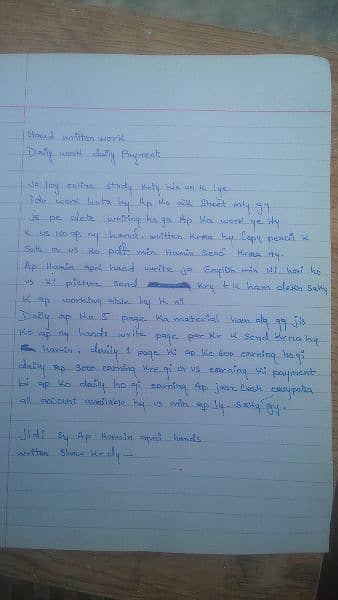 Hand written work
Daily work daily Payment
Jo log online study krty hin un k lye
job work hota hy Ap ko aik sheet mly gy
js pe alote writing ho ga Ap ka work ye hy
k us ko ap ny hand written krna hy Copy pencil k
sath or us ko pdff min Hamin send krna hy.
Ap Hamin apni hand write jo English min ki hoi ho
us ki picture send kry tk ham dekh saky
k ap working able hy k ni
Daily ap ka 5 page ka material ham dy gy jis
ko ap ny hands write page par kr k send krna hy
hamin, daily 1 page ki ap ko 600 earning ho gi
daily ap 3000 earning kre gi or us earning ki payment
bi ap ko daily ho gi earning Ap jazz Cash easypaisa
all account available hy us min ap ly saky gy.
jldi sy Ap Hamin apni hands
written show krdy...